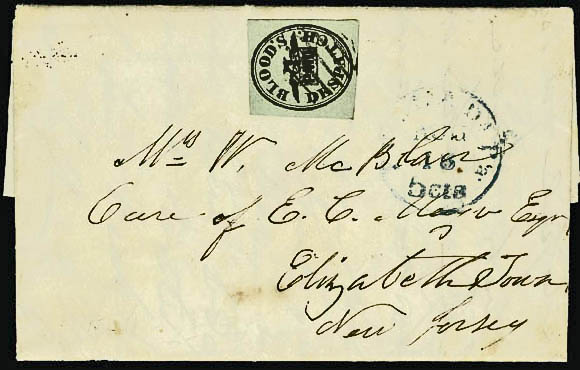 BLOOD'S DESPATCH
18
5cts
Mrs W. McBlair
Care of E. C. Mayo Esqr
Elizabeth Town
New Jersey